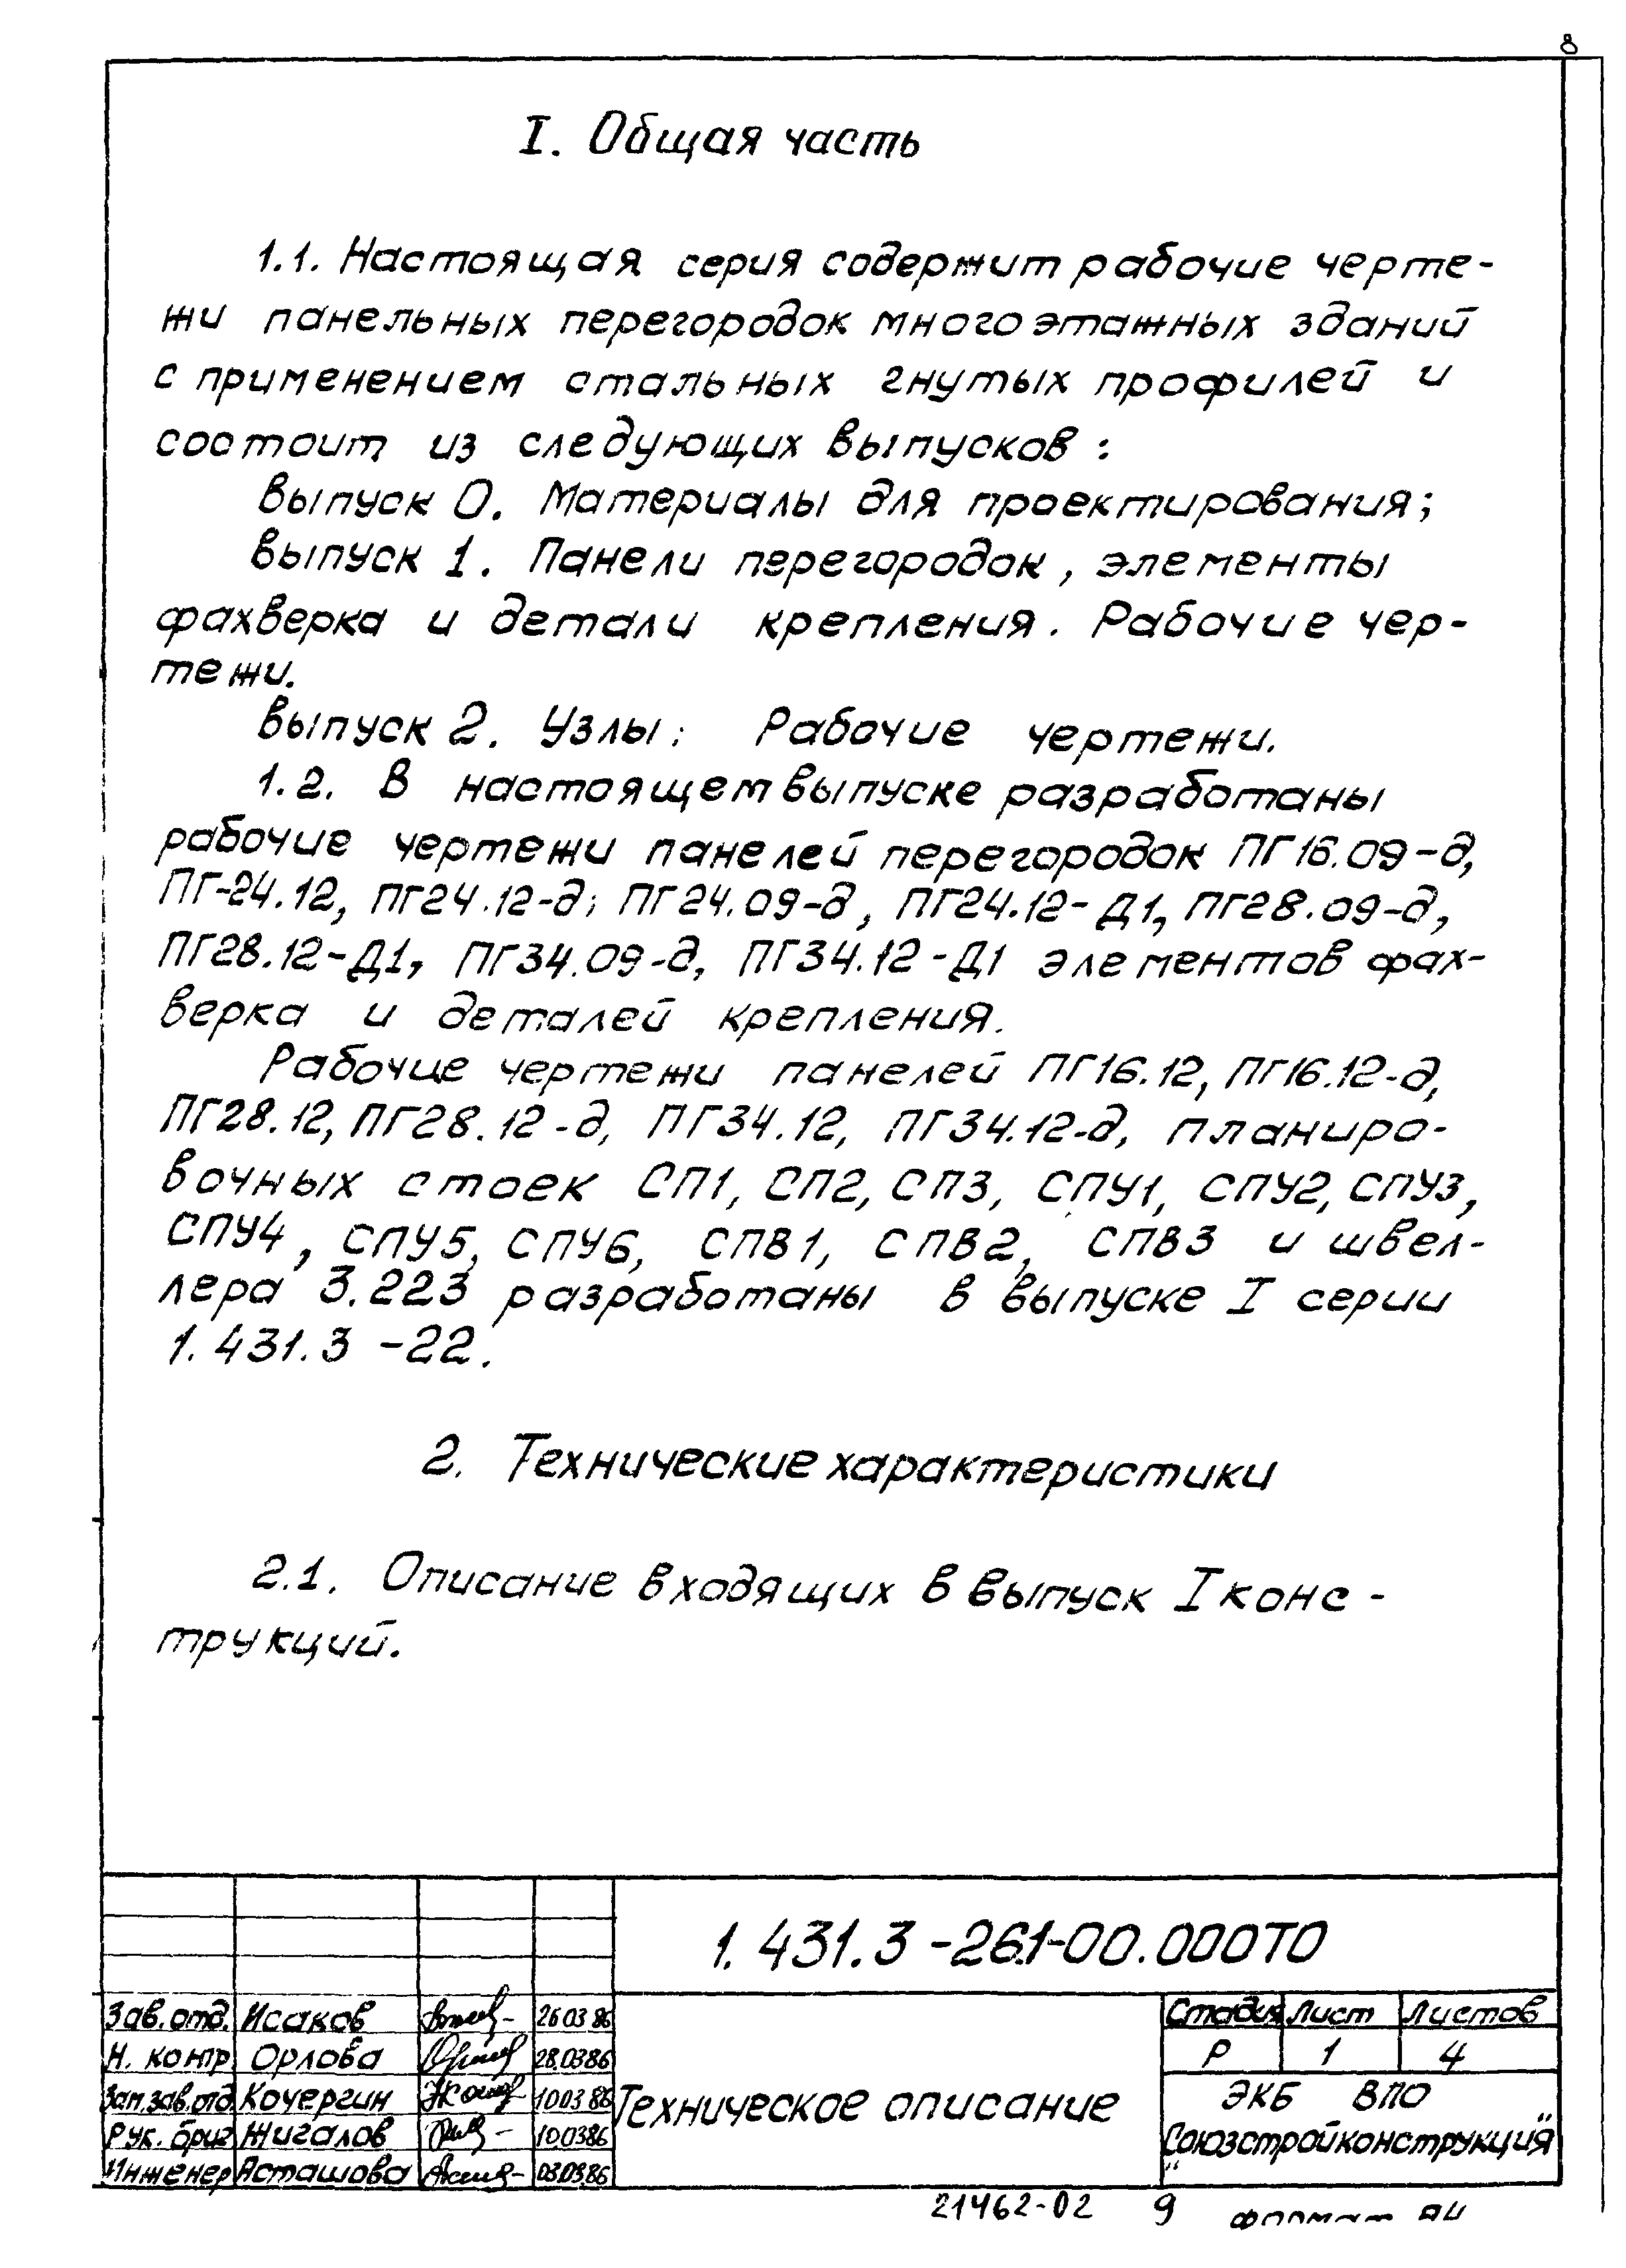 8
I. Общая часть
1.1. Настоящая серия содержит рабочие черте-
жи панельных перегородок многоэтажных зданий
с применением стальных гнутых профилей и
состоит из следующих выпусков:
выпуск 0. Материалы для проектирования;
выпуск 1. Панели перегородок, элементы
фахверка и детали крепления. Рабочие чер-
тежи.
выпуск 2. Узлы. Рабочие чертежи.
1.2. В настоящем выпуске разработаны
рабочие чертежи панелей перегородок ПГ16.09-д,
ПГ-24.12, ПГ24.12-д; ПГ24.09-д, ПГ24.12-Д1, ПГ28.09-д,
ПГ28.12-Д1, ПГ34.09-д, ПГ34.12-Д1 элементов фах-
верка и деталей крепления.
Рабочие чертежи панелей ПГ16.12, ПГ16.12-д,
ПГ28.12, ПГ28.12-д, ПГ34.12, ПГ34.12-д, планиро-
вочных стоек СП1, СП2, СП3, СПУ1, СПУ2, СПУ3,
СПУ4, СПУ5, СПУ6, СПВ1, СПВ2, СПВ3 и швел-
лера 3.223 разработаны в выпуске I серии
1.431.3-22.
2. Технические характеристики
2.1. Описание входящих в выпуск I конс-
трукций.
1.431.3-26.1-00.000ТО
Зав.отд. Исаков 26.03.86
Н. контр Орлова 28.03.86
Зам.зав.отд. Кочергин 10.03.86
Рук. бриг Жигалов 10.03.86
Инженер Асташова 03.03.86
Техническое описание
Стадия Лист Листов
Р 1 4
ЭКБ ВПО
"Союзстройконструкция"
21462-02 9 формат А4